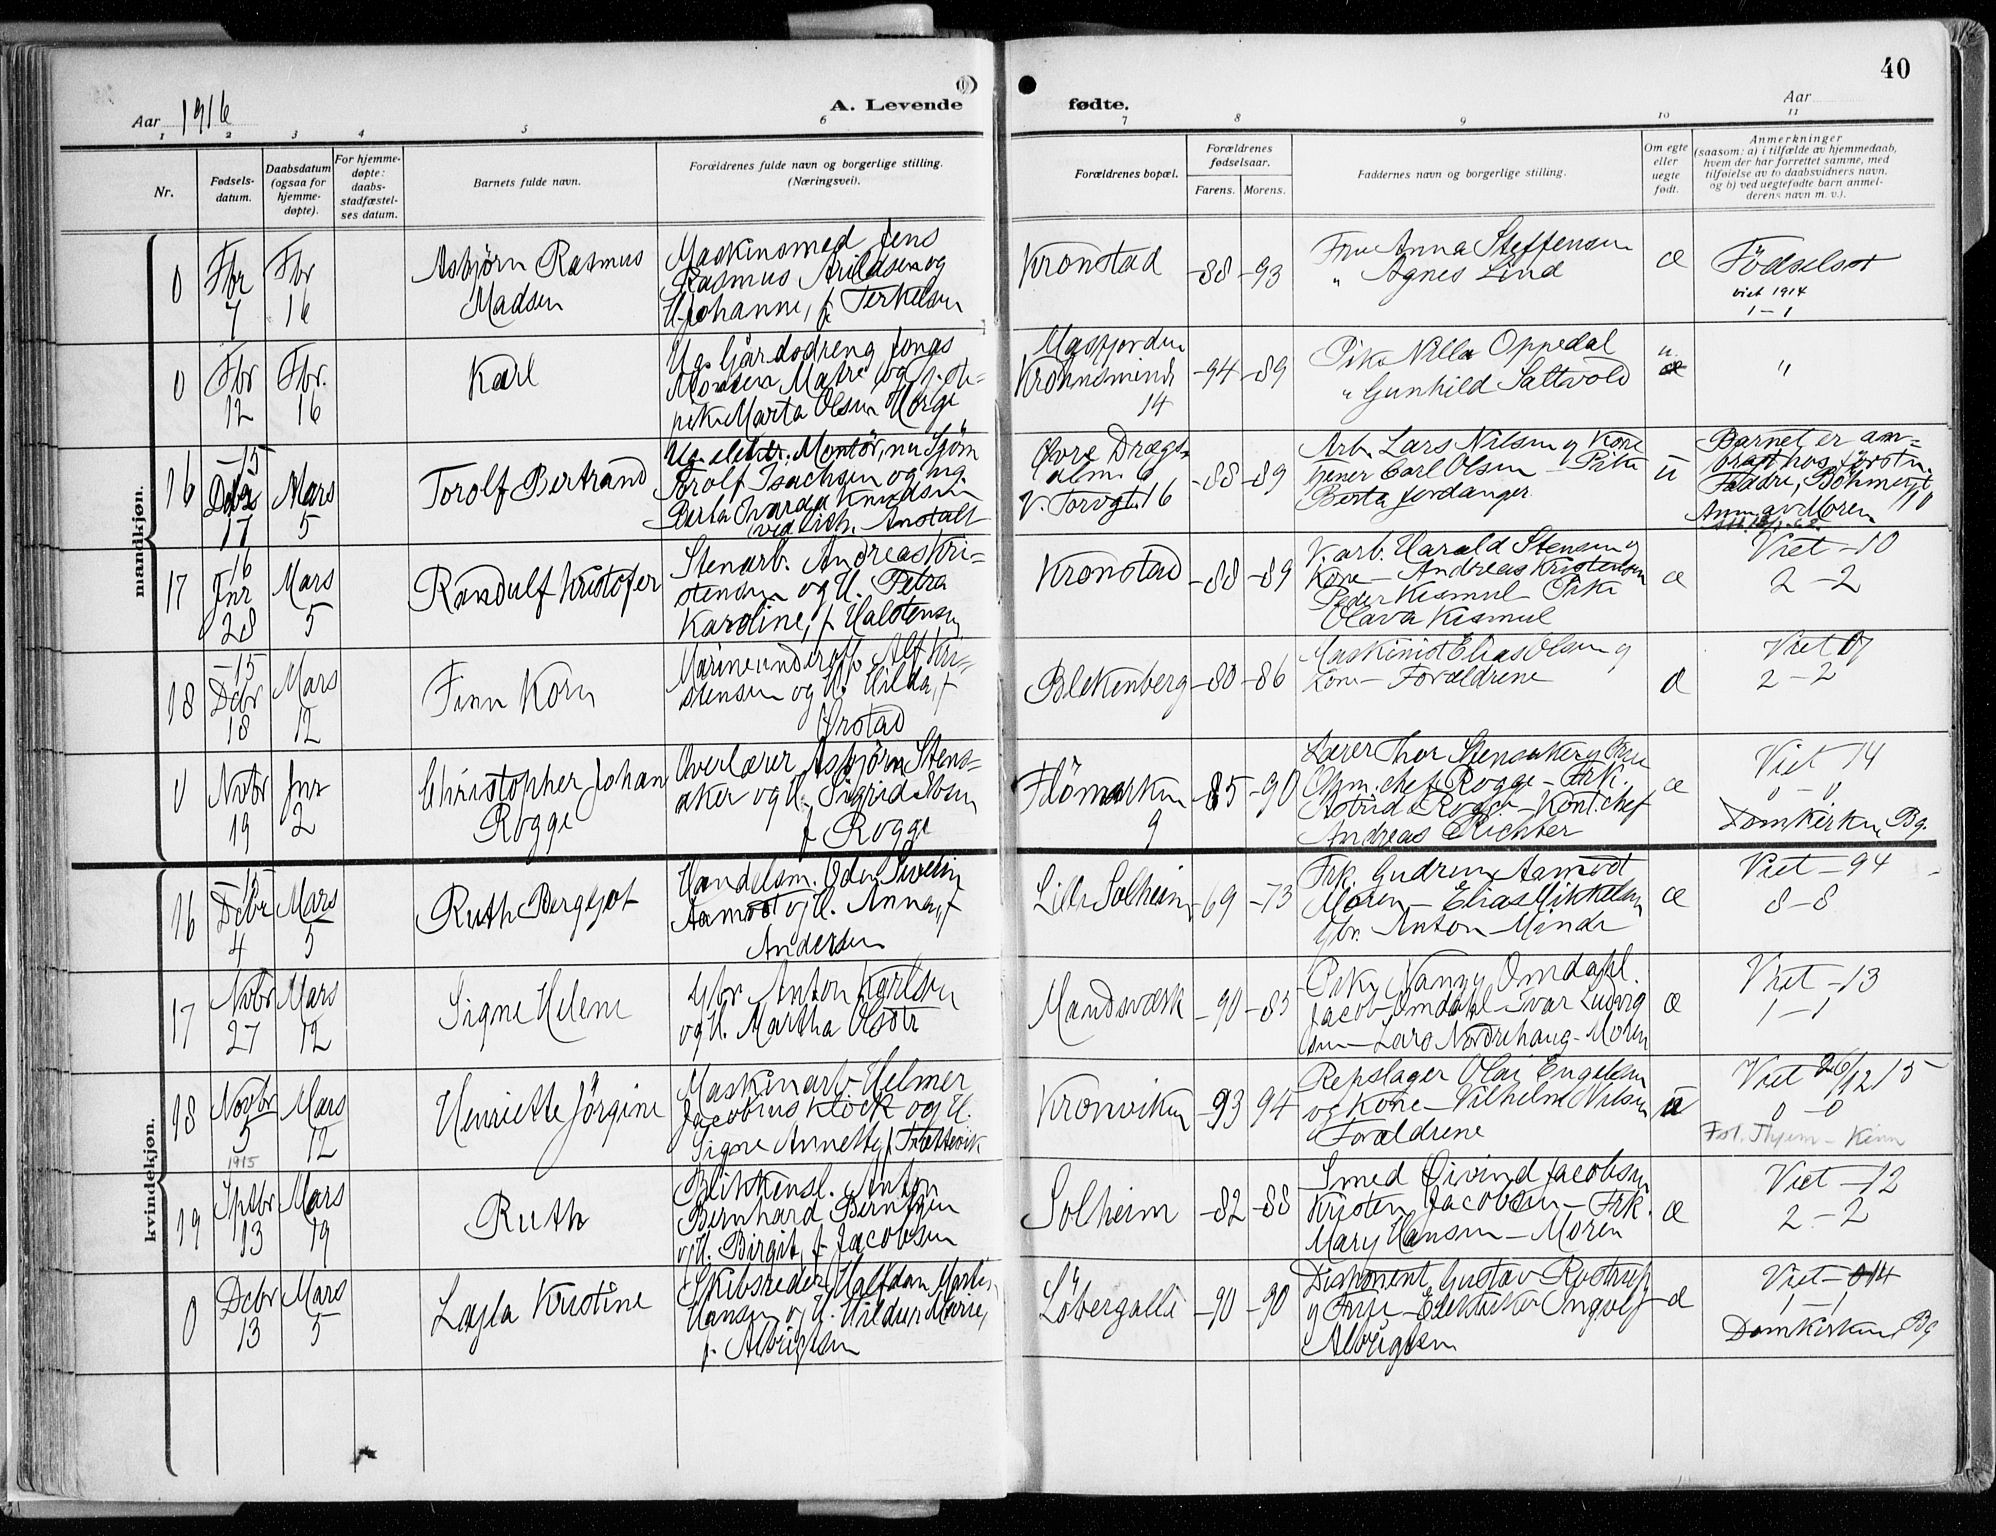 40
Aar 1916
A. Levende fødte.
Aar
1 2 3 4 5 6 7 8 9 10 11
Nr.
Fødsels-
datum.
Daabsdatum
(ogsaa for
hjemme-
døpte).
For hjemme-
døpte:
daabs-
stadfæstel-
ses datum.
Barnets fulde navn.
Forældrenes fulde navn og borgerlige stilling.
(Næringsvei).
Forældrenes bopæl.
Forældrenes
fødselsaar.
Farens. Morens.
Faddernes navn og borgerlige stilling.
Om egte
eller
uegte
født.
Anmerkninger
(saasom: a) i tilfælde av hjemmedaab,
hvem der har forrettet samme, med
tilføielse av to daabsvidners navn.
og b) ved uegtefødte barn anmel-
derens navn m. v.).
mandkjøn.
0
Fbr
7
Fbr
16
Asbjørn Rasmus
Madsen
Maskinsmed Jens
Rasmus Arildsen og
H. Johanne, f. Terkelsen
Kronstad
-88 -93
Frue Anna Steffensen
" Agnes Lind
æ
Fødselsst
viet 1914
1-1
0
Fbr
12
Fbr.
16
Karl
Ug. Gårdsdreng Jonas
Monsen Matre og tj.ste-
pike Marta Olsen Horge
Masfjorden
Krohnsminde
14
-94 -89
Pike Nilla Oppedal
" Gunhild Saltvold
u.
"
16
-15
Dcbr
17
Mars
5
Torolf Bertrand
Ug. elektr. Montør, nu Sjøm
Torolf Isachsen og ug.
Berta Knudsen
Anstalt
Øvre Drægs-
alm.
V. Torvgt. 16
-88 -89
Arb. Lars Nilsen og Kone
Carl Olsen - Pike
Berta Jordanger
ü
Barnet er an-
bragt hos
Faddre, Böhmergt
110
Anm. av Moren
17
16
Jnr
28
Mars
5
Randulf Kristofer
Stenarb. Andreas Kri-
stensen og H. Petra
Karoline, f. Halstensen
Kronstad
-88 -89
V. arb. Harald Stensen og
Kone - Andreas Kristensen
Peder Kismul - Pike
Olava Kismul
æ
Viet -10
2-2
18
-15
Dcbr
18
Mars
12
Finn Korn
Marineunderoff. Alf Kri-
stensen og H. Hilda, f
Ørstad
Blekenberg
-80 -86
Maskinist Elias Olsen og
Kone - Forældrene
æ
Viet 07
2-2
0
Nvbr
19
Jnr
2
Christopher Johan
Rogge
Overlærer Asbjørn Stens-
aker og H. Sigrid
f Rogge
Flømarken
9
-85 -90
Lærer Thor Stensaker og
chef Rogge - Frk.
Astrid Rogge - Kont.chef
Andreas Richter
æ
Viet -14
0-0
Domkirken, Bg.
kvindekjøn.
16
15
Dcbr
4
Mars
5
Ruth Bergljot
Handelsm. Oden Sivein
Aamodt og H. Anna, f
Andersen
Lille Solheim
-69 -73
Frk. Gudrun Aamodt
Moren - Elias Mikkelsen
Gbr. Anton Minde
æ
Viet -94
8-8
17
Nvbr
27
Mars
12
Signe Helene
Gbr. Anton Karlsen
og H. Martha Olsdtr
Mandsværk
-90 -83
Pike Nanny Omdahl.
Jacob Omdahl - Ivar Ludvig
sen - Lars Nordrehaug - Moren
æ
Viet -13
1-1
18
Novbr
5
1915
Mars
12
Henriette Jørgine
Maskinarb. Helmer
Jacobius Klock og H.
Signe Annette, f Frættevik
Kronviken
-93 94
Repslager Olai Engelsen
og Kone - Vilhelm Nilsen
Forældrene
Viet 26/12 15
0-0
Fst. Thjem - Kinn
19
Sptbr
13
Mars
19
Ruth
Blikkensl. Anton
Bernhard Berntsen
og H. Birgit, f. Jacobsen
Solheim
-82 -88
Smed Øivind Jacobsen
Kristen Jacobsen - Frk.
Mary Hansen - Moren
æ
Viet -12
2-2
0
Dcbr
13
Mars
5
Layla Kristine
Skibsreder Halfdan Martin
Hansen og H. Hildur Marie,
f. Alvrigsen
Løbergallé
-90 -90
Disponent Gustav Rostrup
og Frue - Elektriker Ingolf
Alvrigsen
æ
Viet - 14
1-1
Domkirken, Bg